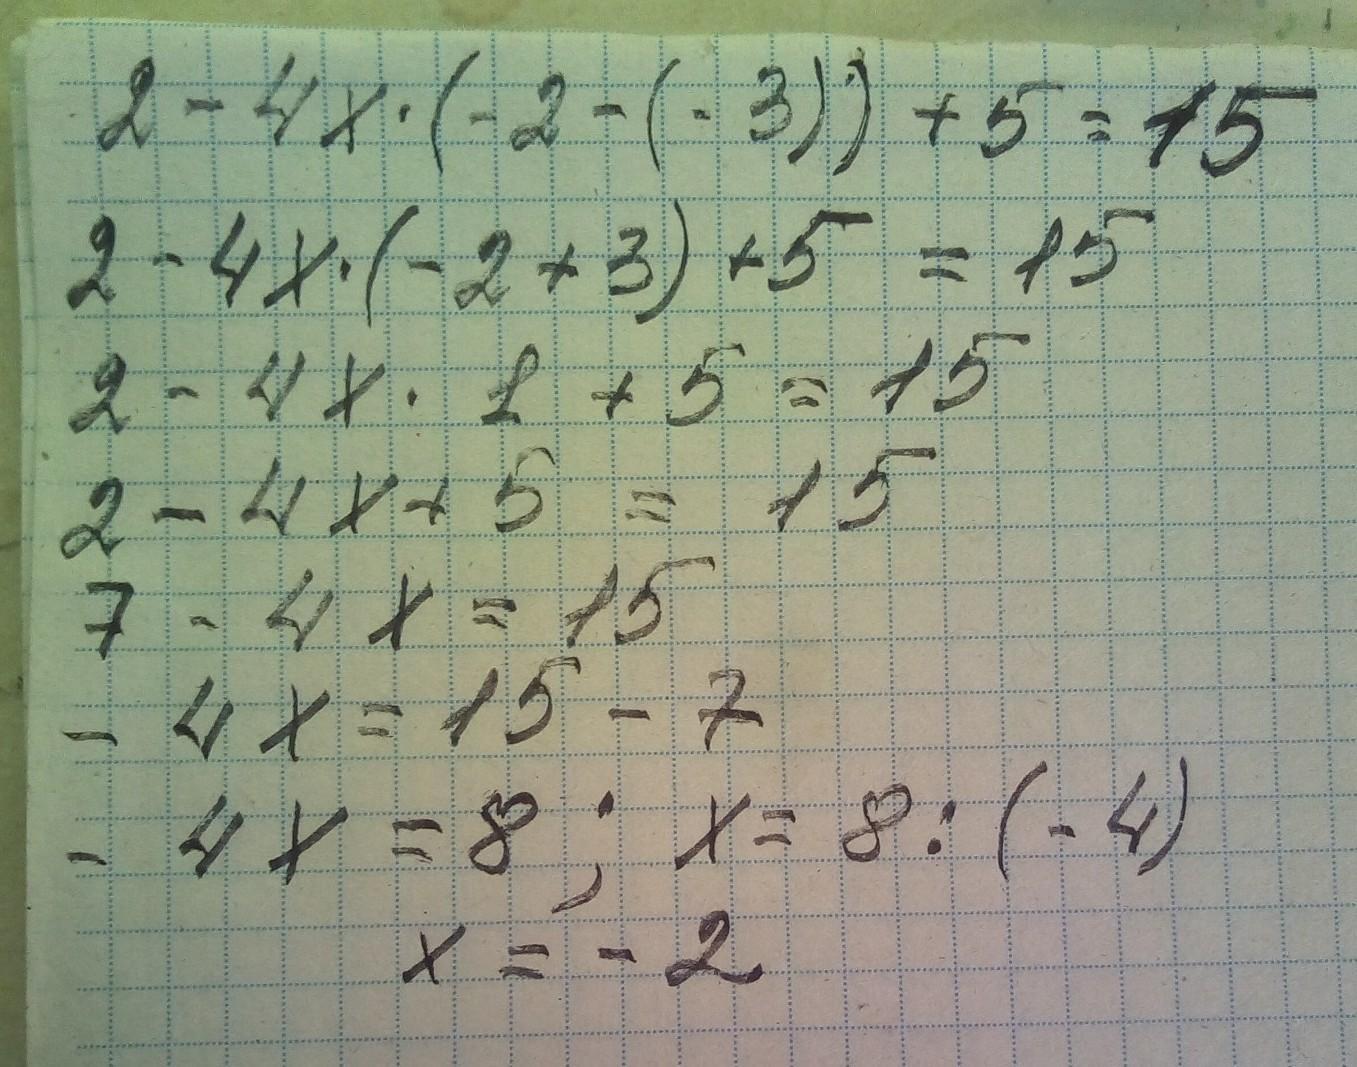 2 - 4x · (-2 - (-3)) + 5 = 15
2 - 4x · (-2 + 3) + 5 = 15
2 - 4x · 1 + 5 = 15
2 - 4x + 5 = 15
7 - 4x = 15
- 4x = 15 - 7
- 4x = 8 ; x = 8 : (-4)
x = - 2